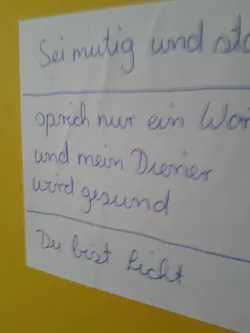 Sei mutig und sta
sprich nur ein Wor
und mein Diener
wird gesund
Du bist Licht